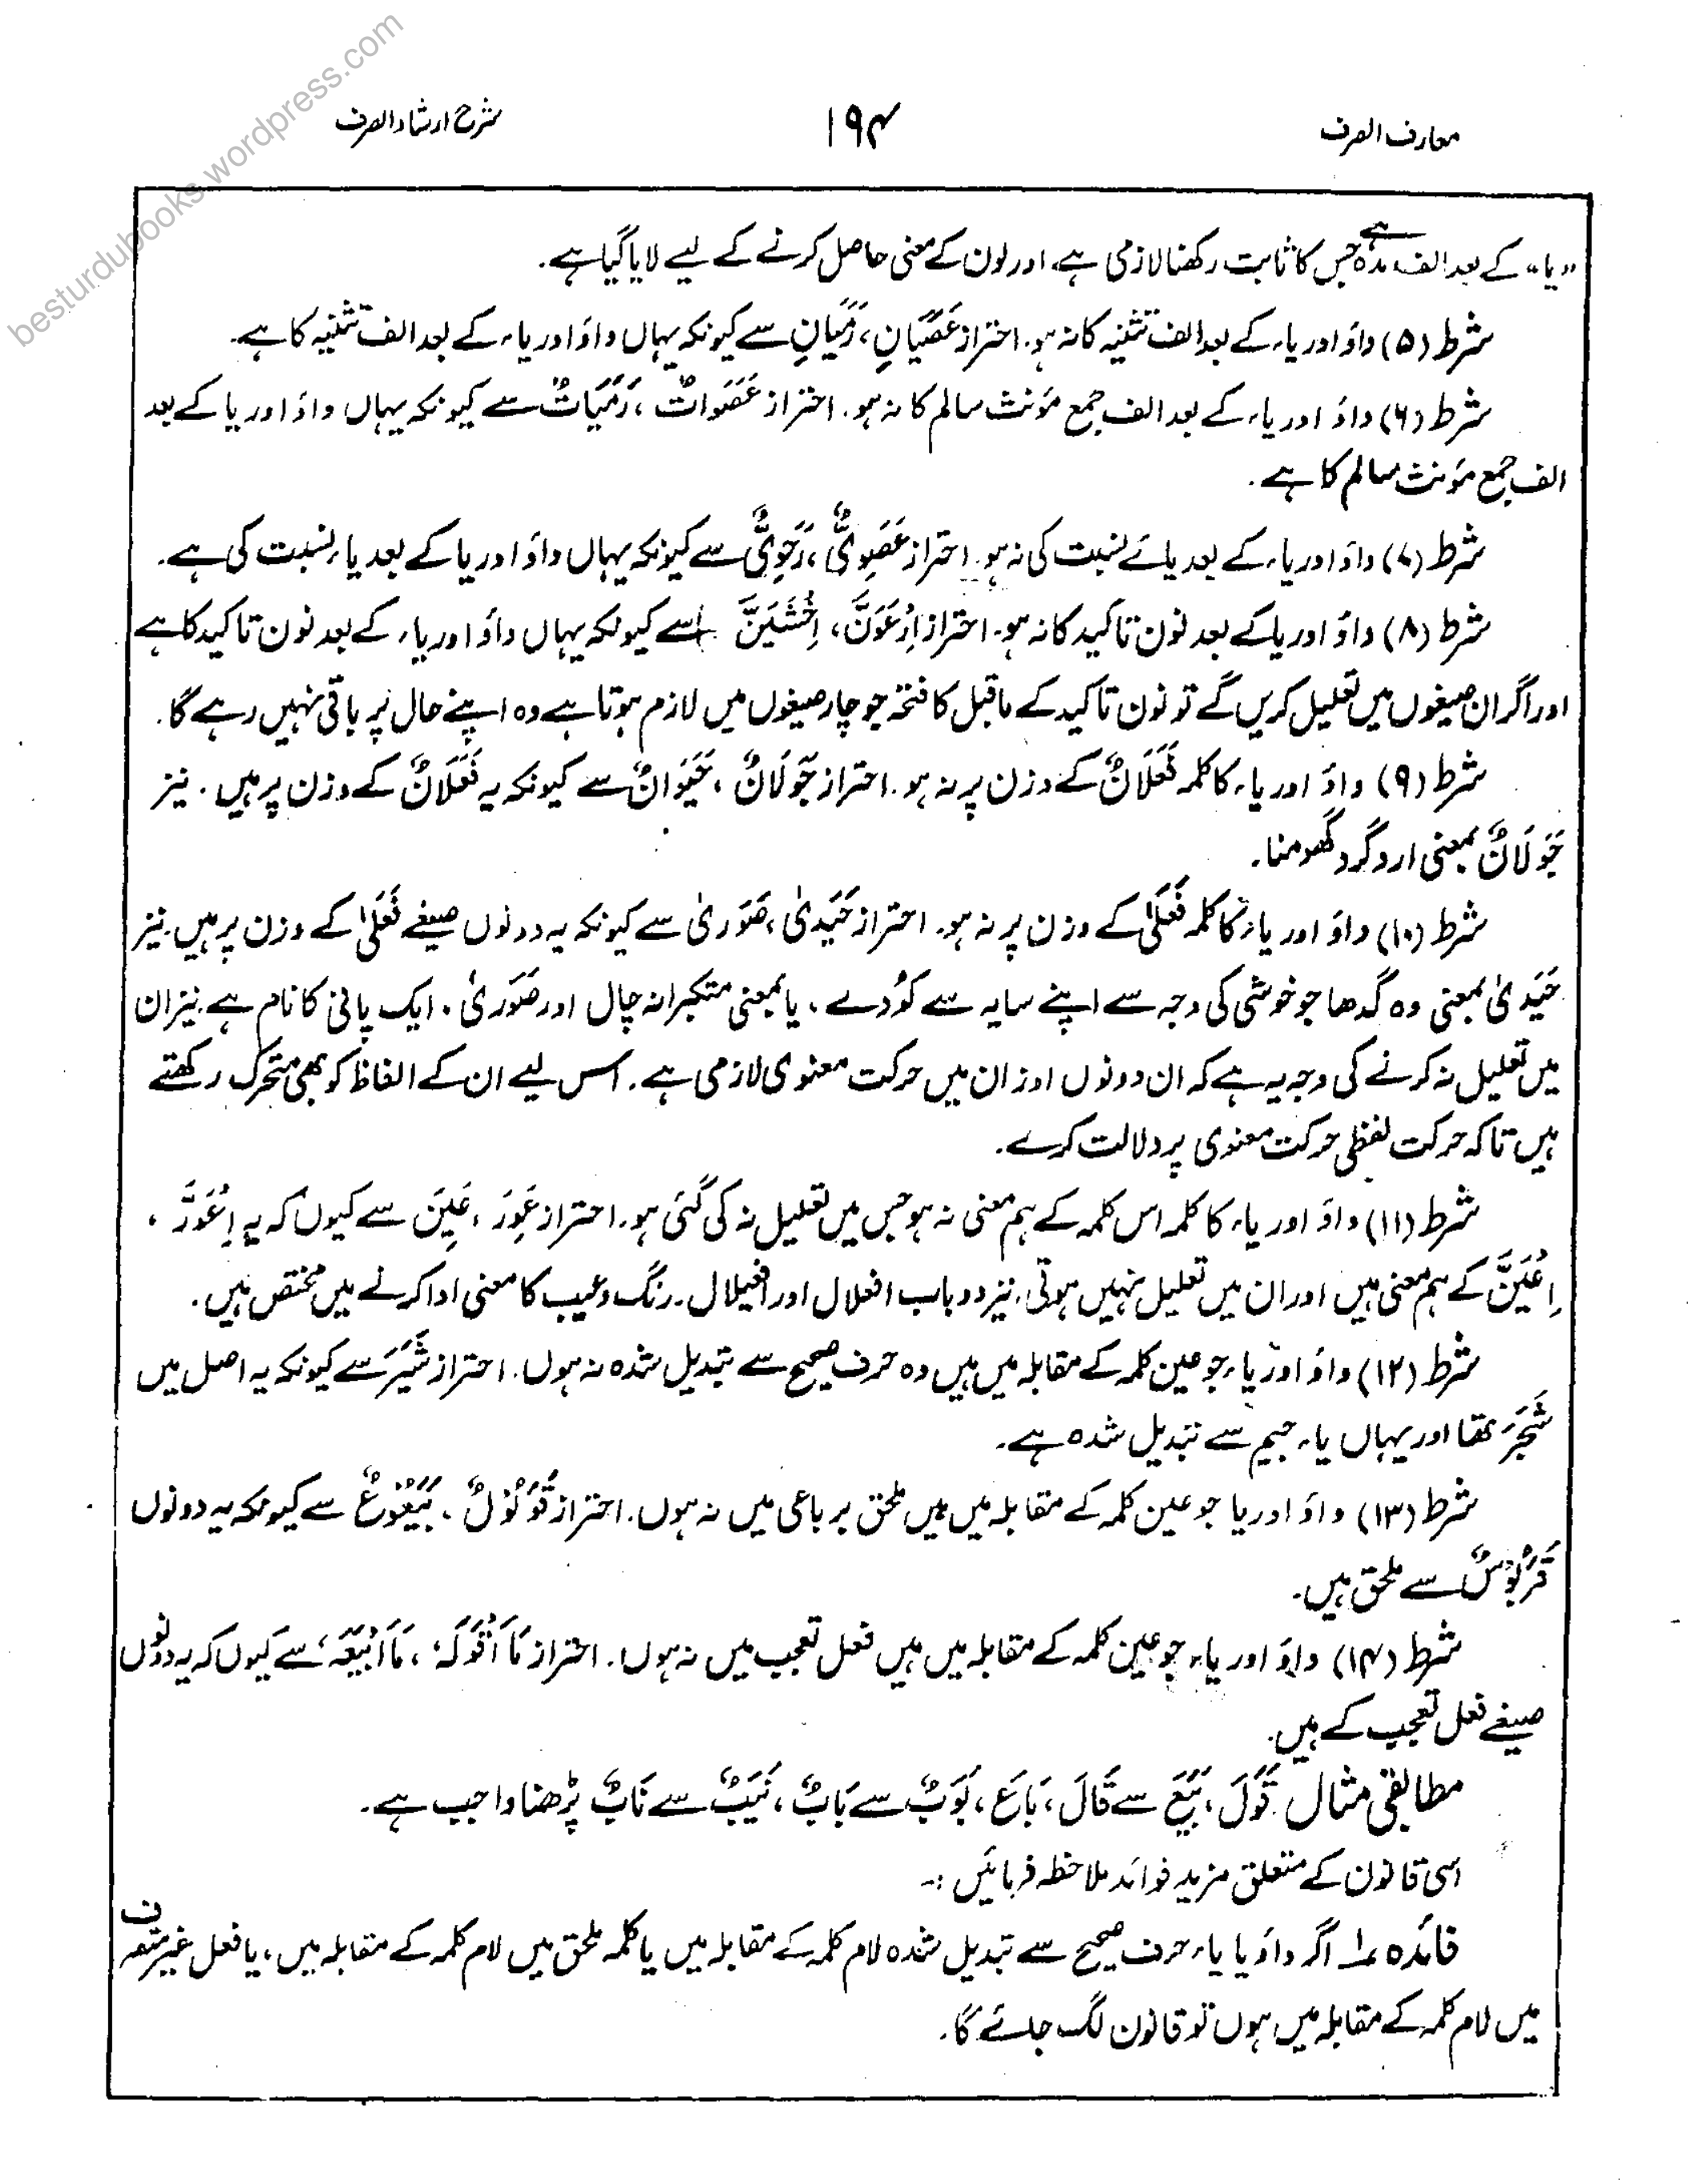 معارف الصرف
۱۹۴
شرح ارشاد الصرف
besturdubooks.wordpress.com
"یا" کے بعد الف مدہ ہے جس کا ثابت رکھنا لازمی ہے اور لون کے معنی حاصل کرنے کے لیے لایا گیا ہے۔
شرط (۵) واؤ اور یاء کے بعد الف تثنیہ کا نہ ہو۔ احتراز عَصَیَانِ، رَمَیَانِ سے کیونکہ یہاں واؤ اور یاء کے بعد الف تثنیہ کا ہے۔
شرط (۶) واؤ اور یاء کے بعد الف جمع مؤنث سالم کا نہ ہو۔ احتراز عَصَوَاتٌ، رَمَیَاتٌ سے کیونکہ یہاں واؤ اور یا کے بعد
الف جمع مؤنث سالم کا ہے۔
شرط (۷) واؤ اور یاء کے بعد یائے نسبت کی نہ ہو۔ احتراز عَصَوِیٌّ، رَحَوِیٌّ سے کیونکہ یہاں واؤ اور یا کے بعد یاء نسبت کی ہے۔
شرط (۸) واؤ اور یا کے بعد نون تاکید کا نہ ہو۔ احتراز اِرْعَوَنَّ، اِخْشَیَنَّ سے کیونکہ یہاں واؤ اور یاء کے بعد نون تاکید کا ہے
اور اگر ان صیغوں میں تعلیل کریں گے تو نون تاکید کے ماقبل کا فتحہ جو چار صیغوں میں لازم ہوتا ہے وہ اپنے حال پر باقی نہیں رہے گا۔
شرط (۹) واؤ اور یاء کا کلمہ فَعَلَانٌ کے وزن پر نہ ہو۔ احتراز جَوَلَانٌ، حَیَوَانٌ سے کیونکہ یہ فَعَلَانٌ کے وزن پر ہیں۔ نیز
جَوَلَانٌ بمعنی اردگرد گھومنا۔
شرط (۱۰) واؤ اور یاء کا کلمہ فَعَلٰی کے وزن پر نہ ہو۔ احتراز حَیَدیٰ، صَوَریٰ سے کیونکہ یہ دونوں صیغے فَعَلٰی کے وزن پر ہیں۔ نیز
حَیَدیٰ بمعنی وہ گدھا جو خوشی کی وجہ سے اپنے سایہ سے کودے، یا بمعنی متکبرانہ چال اور صَوَریٰ۔ ایک پانی کا نام ہے۔ نیز ان
میں تعلیل نہ کرنے کی وجہ یہ ہے کہ ان دونوں اوزان میں حرکت معنوی لازمی ہے۔ اس لیے ان کے الفاظ کو بھی متحرک رکھتے
ہیں تاکہ حرکت لفظی حرکت معنوی پر دلالت کرے۔
شرط (۱۱) واؤ اور یاء کا کلمہ اس کلمہ کے ہم معنی نہ ہو جس میں تعلیل نہ کی گئی ہو۔ احتراز عَوِرَ، عَیِنَ سے کیوں کہ یہ اِعْوَرَّ،
اِعْیَنَّ کے ہم معنی ہیں اور ان میں تعلیل نہیں ہوتی۔ نیز دو باب افعلال اور افعیلال۔ رنگ و عیب کا معنی ادا کرنے میں مختص ہیں۔
شرط (۱۲) واؤ اور یاء جو عین کلمہ کے مقابلہ میں ہیں وہ حرف صحیح سے تبدیل شدہ نہ ہوں۔ احتراز شَیَرَ سے کیونکہ یہ اصل میں
شَجَرَ تھا اور یہاں یاء جیم سے تبدیل شدہ ہے۔
شرط (۱۳) واؤ اور یا جو عین کلمہ کے مقابلہ میں ہیں ملحق برباعی میں نہ ہوں۔ احتراز قَوَلُوْلٌ، بَیَعُوْعٌ سے کیونکہ یہ دونوں
قَرَبُوْسٌ سے ملحق ہیں۔
شرط (۱۴) واؤ اور یاء جو عین کلمہ کے مقابلہ میں ہیں فعل تعجب میں نہ ہوں۔ احتراز مَا اَقْوَلَهٗ، مَا اَبْیَعَهٗ سے کیوں کہ یہ دونوں
صیغے فعل تعجب کے ہیں۔
مطابقی مثال قَوَلَ، بَیَعَ سے قَالَ، بَاعَ، بَوَبٌ سے بَابٌ، نَیَبٌ سے نَابٌ پڑھنا واجب ہے۔
اسی قانون کے متعلق مزید فوائد ملاحظہ فرمائیں :-
فائدہ ۱ اگر واؤ یا یاء حرف صحیح سے تبدیل شدہ لام کلمہ کے مقابلہ میں یا کلمہ ملحق میں لام کلمہ کے مقابلہ میں، یا فعل غیر متصرف
میں لام کلمہ کے مقابلہ میں ہوں تو قانون لگ جائے گا۔